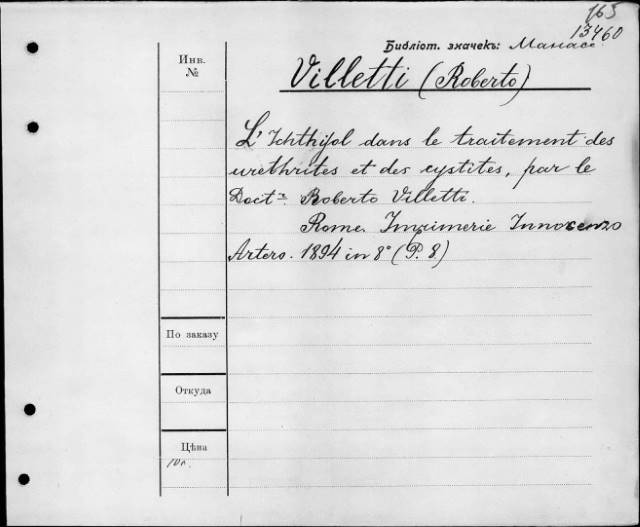 165
13460
Библіот. значекъ: Манасс.
Инв.
№
Villetti (Roberto)
L'Ichthyol dans le traitement des
urethrites et des cystites, par le
Doctr. Roberto Villetti.
Rome, Imprimerie Innocenzo
Artero. 1894 in 8° (P. 8)
По заказу
Откуда
Цѣна
10к.